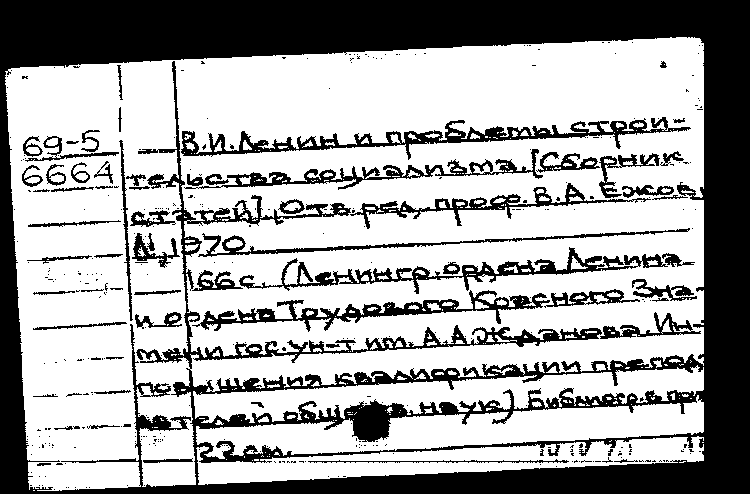 69-5
6664
В.И.Ленин и проблемы строи-
тельства социализма. [Сборник
статей]. Отв. ред. проф. В.А. Ежов.
Л., 1970.
166 с. (Ленингр. ордена Ленина
и ордена Трудового Красного Зна-
мени гос. ун-т им. А.А.Жданова. Ин-т
повышения квалификации препода
вателей обществ. наук) Библиогр. в прим
22 см.